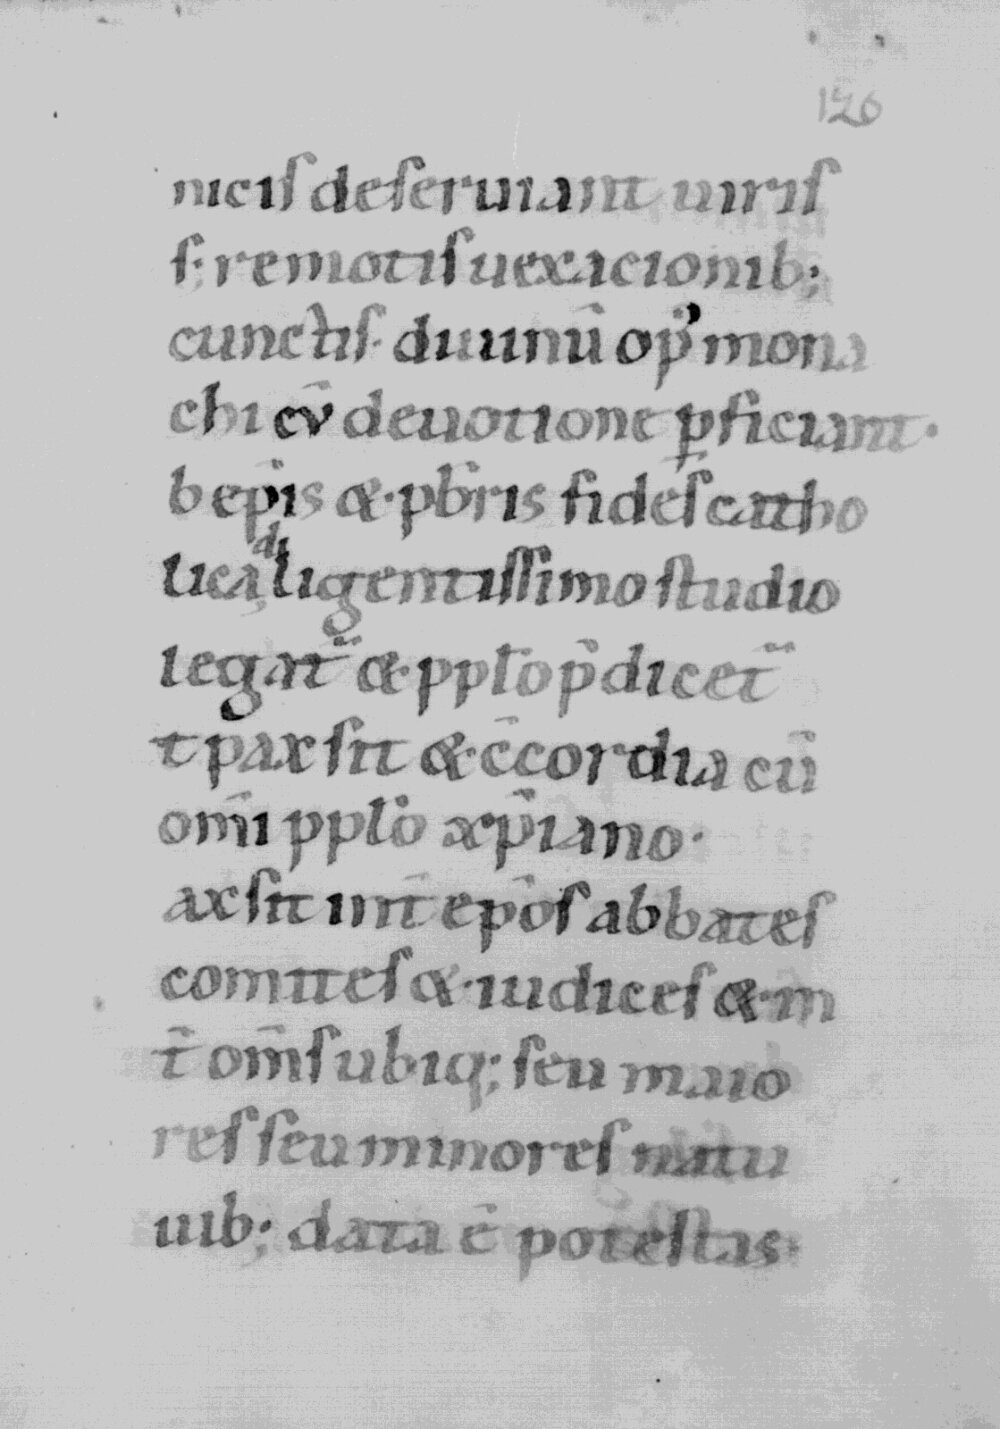 126
nicis deseruiant uiris
s; remotis uexacionib;
cunctis. diuinū op̄' mona
chi cū deuotione ꝑficiant.
b ep̄is &. pb̄ris fides catho
lica diligentissimo studio
legat̄ &. pplo p̄dicet̄
t pax sit &. c̄cordia cū
om̄i pplo xp̄iano.
ax sit int̄ ep̄os abbates
comites &. iudices &. in
t̄ om̄s ubiq; seu maio
res seu minores natu
uib; data ē potestas.